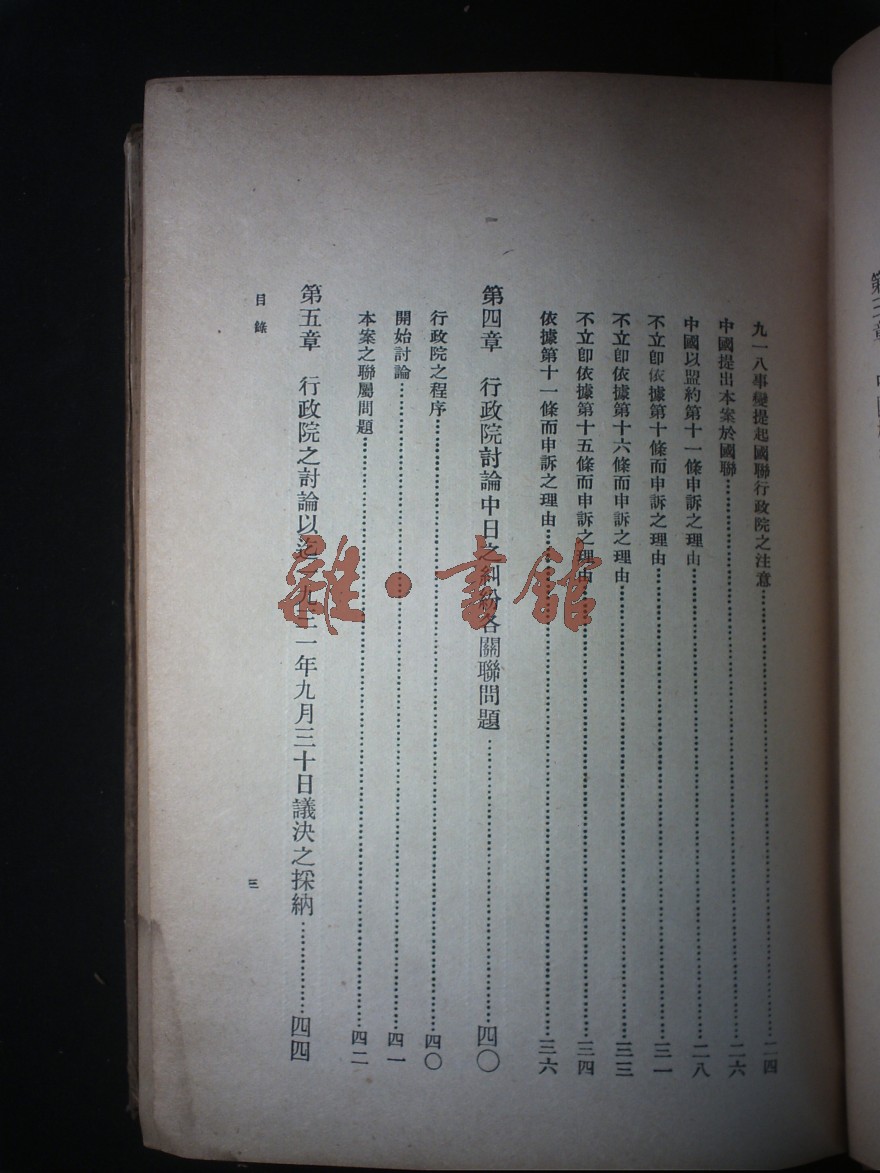 九一八事變提起國聯行政院之注意……二四
中國提出本案於國聯……二六
中國以盟約第十一條申訴之理由……二八
不立卽依據第十條而申訴之理由……三一
不立卽依據第十六條而申訴之理由……三三
不立卽依據第十五條而申訴之理由……三四
依據第十一條而申訴之理由……三六
第四章 行政院討論中日之糾紛各關聯問題……四〇
行政院之程序……四〇
開始討論……四一
本案之聯屬問題……四二
第五章 行政院之討論以迄一九三一年九月三十日議決之採納……四四
目錄
三
雜·書館